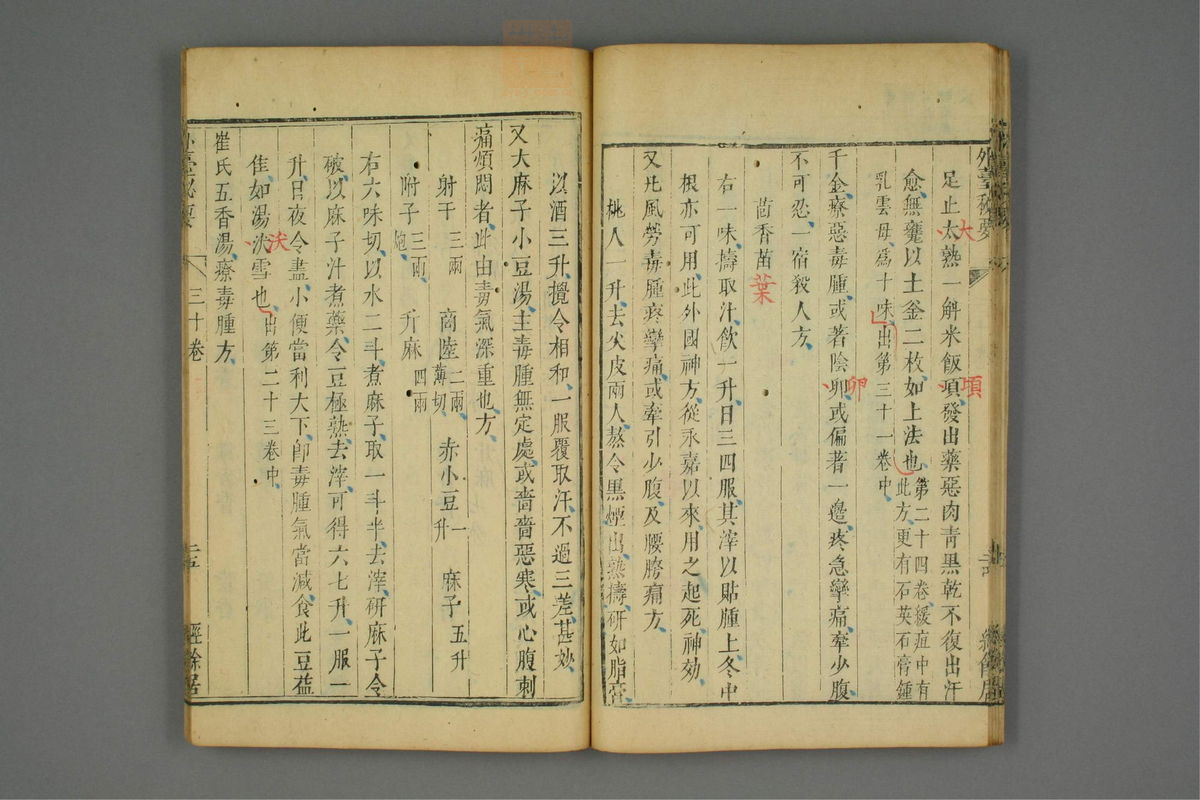 足止太熱一斛米飯項發出藥惡肉青黑乾不復出汗
大
頃
愈無甕以土釜二枚如上法也第二十四卷緩疽中有
此方更有石英石膏鍾
乳雲母爲十味出第三十一卷中
千金療惡毒腫或著陰卵或偏著一邊疼急攣痛牽少腹
卵
不可忍一宿殺人方
茴香苗
葉
右一味擣取汁飲一升日三四服其滓以貼腫上冬中
根亦可用此外國神方從永嘉以來用之起死神効
又凡風勞毒腫疼攣痛或牽引少腹及腰胯痛方
桃人一升去尖皮兩人熬令黑煙出熱擣研如脂膏
以酒三升攪令相和一服覆取汗不過三差甚妙
又大麻子小豆湯主毒腫無定處或嗇嗇惡寒或心腹刺
痛煩悶者此由毒氣深重也方
射干三兩 商陸二兩薄切 赤小豆一升 麻子五升
附子三兩炮 升麻四兩
右六味切以水二斗煮麻子取一斗半去滓研麻子令
破以麻子汁煮藥令豆極熟去滓可得六七升一服一
升日夜令盡小便當利大下卽毒腫氣當減食此豆益
佳如湯泆雪也出第二十三卷中
沃
崔氏五香湯療毒腫方
三十卷
二十五
經餘居
外臺秘要